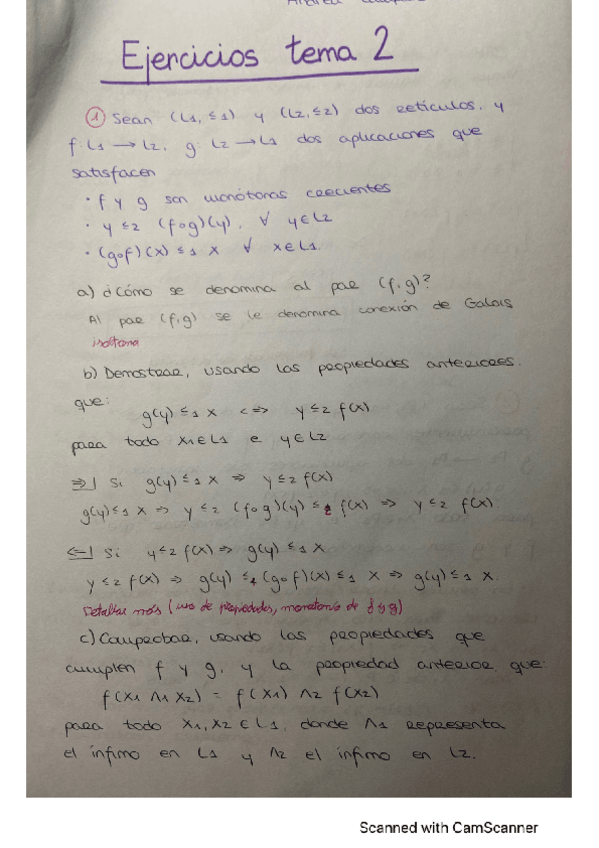 Ejercicios tema 2
① Sean (L1, ≤1) y (L2, ≤2) dos retículos, y
f: L1 → L2, g: L2 → L1 dos aplicaciones que
satisfacen
· f y g son monótonas crecientes
· y ≤2 (f∘g)(y), ∀ y ∈ L2
· (g∘f)(x) ≤1 x ∀ x ∈ L1.
a) ¿Cómo se denomina al par (f,g)?
Al par (f,g) se le denomina conexión de Galois
isótona
b) Demostrar, usando las propiedades anteriores.
que:
g(y) ≤1 x <=> y ≤2 f(x)
para todo x1 ∈ L1 e y ∈ L2
⇒| Si g(y) ≤1 x ⇒ y ≤2 f(x)
g(y) ≤1 x ⇒ y ≤2 (f∘g)(y) ≤2 f(x) ⇒ y ≤2 f(x)
⇐| Si y ≤2 f(x) ⇒ g(y) ≤1 x
y ≤2 f(x) ⇒ g(y) ≤1 (g∘f)(x) ≤1 x ⇒ g(y) ≤1 x.
Detallar más (uso de propiedades, monotonía de f y g)
c) Comprobar, usando las propiedades que
cumplen f y g, y la propiedad anterior que:
f(x1 ∧1 x2) = f(x1) ∧2 f(x2)
para todo x1, x2 ∈ L1, donde ∧1 representa
el ínfimo en L1 y ∧2 el ínfimo en L2.
Scanned with CamScanner